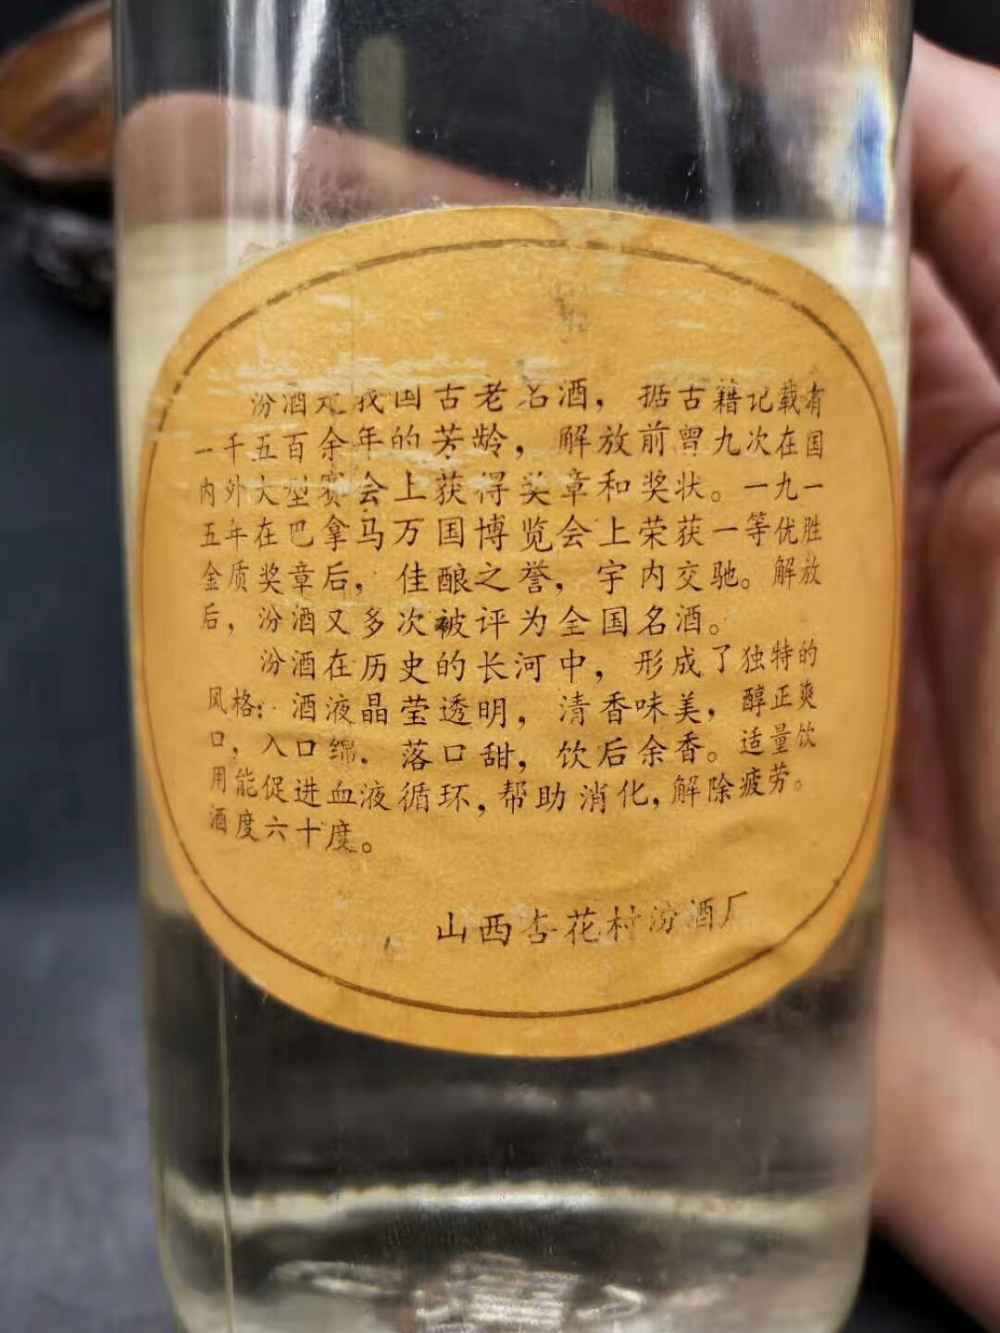 汾酒是我国古老名酒，据古籍记载有
一千五百余年的芳龄，解放前曾九次在国
内外大型赛会上获得奖章和奖状。一九一
五年在巴拿马万国博览会上荣获一等优胜
金质奖章后，佳酿之誉，宇内交驰。解放
后，汾酒又多次被评为全国名酒。
汾酒在历史的长河中，形成了独特的
风格：酒液晶莹透明，清香味美，醇正爽
口，入口绵．落口甜，饮后余香。适量饮
用能促进血液循环，帮助消化，解除疲劳。
酒度六十度。
山西杏花村汾酒厂